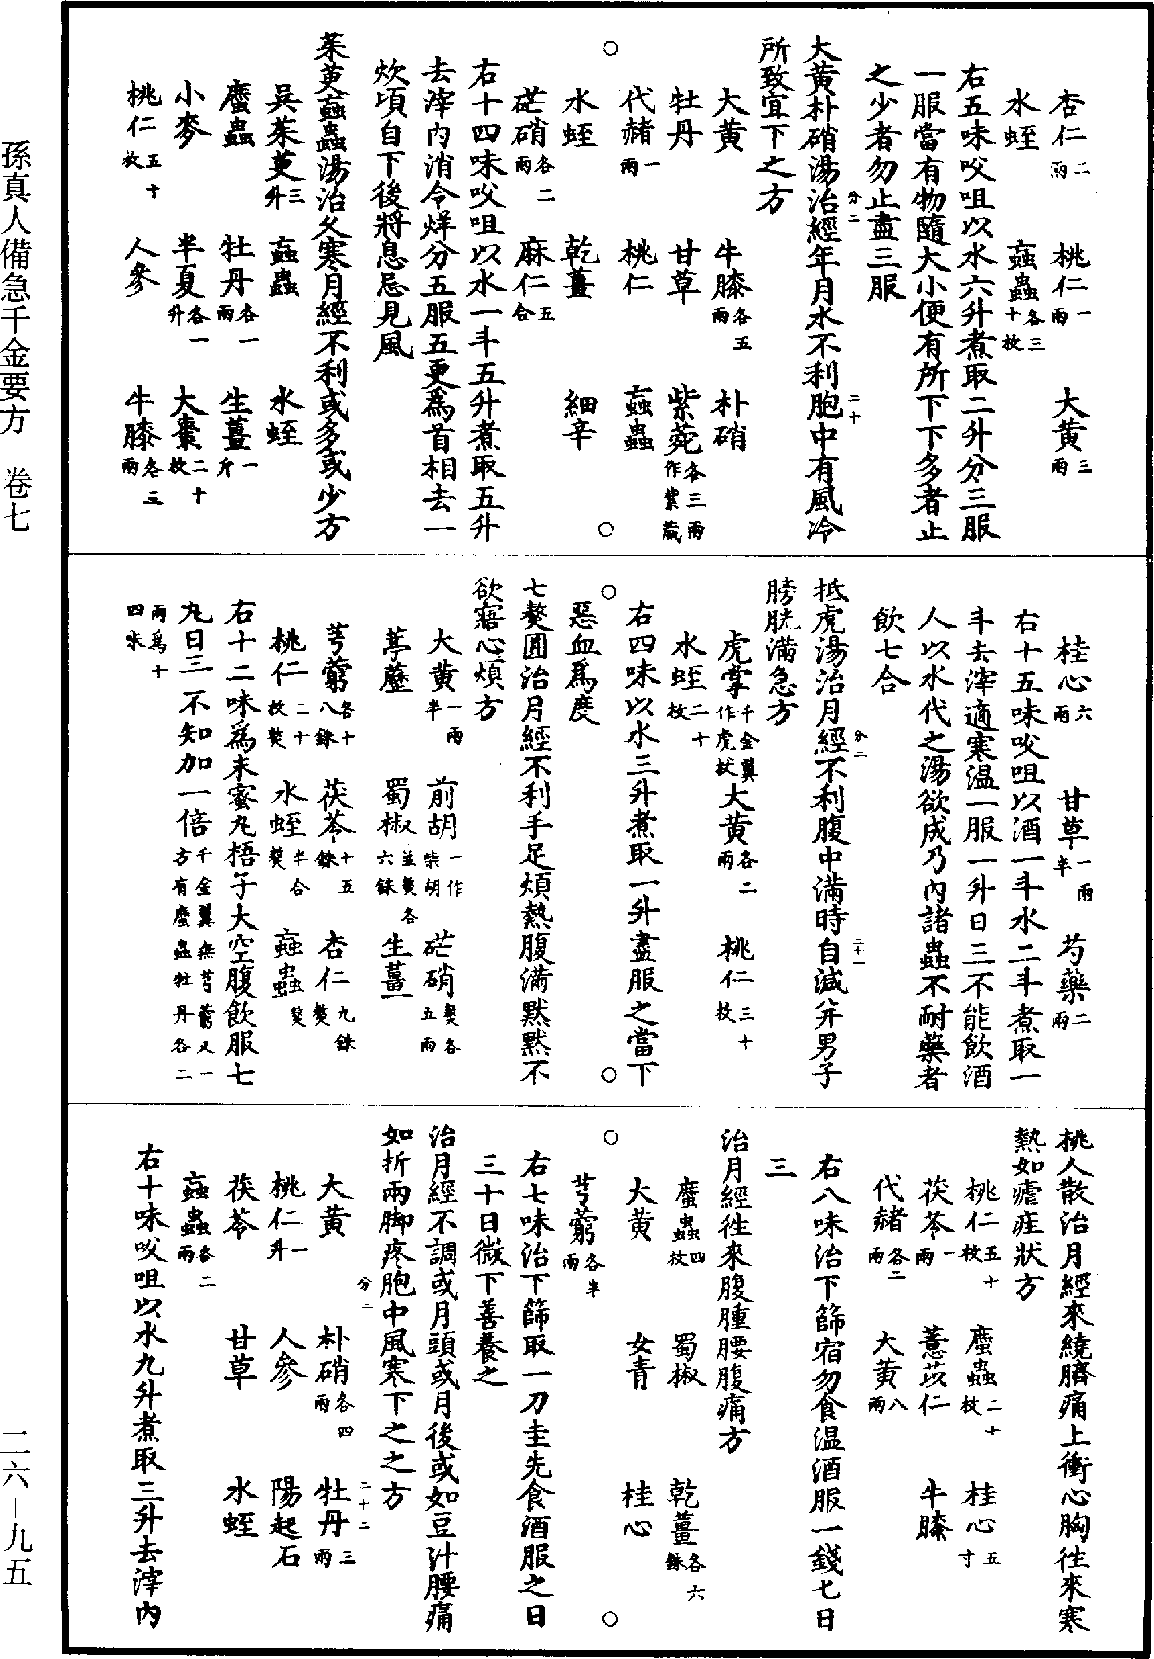 杏仁二兩　桃仁一兩　大黃三兩
水蛭　蝱蟲各三十枚
右五味㕮咀以水六升煮取二升分三服
一服當有物隨大小便有所下下多者止
之少者勿止盡三服
大黃朴硝湯治經年月水不利胞中有風冷
所致宜下之方
大黃　牛膝各五兩　朴硝
牡丹　甘草　紫菀各三兩作紫葳
代赭一兩　桃仁　蝱蟲
水蛭　乾薑　細辛
芒硝各二兩　麻仁五合
右十四味㕮咀以水一斗五升煮取五升
去滓內消令烊分五服五更爲首相去一
炊頃自下後將息忌見風
茱萸蝱蟲湯治久寒月經不利或多或少方
吳茱萸三升　蝱蟲　水蛭
䗪蟲　牡丹各一兩　生薑一斤
小麥　半夏各一升　大棗二十枚
桃仁五十枚　人參　牛膝各三兩
桂心六兩　甘草一兩半　芍藥二兩
右十五味㕮咀以酒一斗水二斗煮取一
斗去滓適寒温一服一升日三不能飲酒
人以水代之湯欲成乃內諸蟲不耐藥者
飲七合
抵虎湯治月經不利腹中滿時自減并男子
膀胱滿急方
虎掌千金翼作虎杖　大黃各二兩　桃仁三十枚
水蛭二十枚
右四味以水三升煮取一升盡服之當下
惡血爲度
七熬圓治月經不利手足煩熱腹滿默默不
欲寤心煩方
大黃一兩半　前胡一作柴胡　芒硝熬各五兩
葶藶　蜀椒並熬各六銖　生薑
芎藭各十八銖　茯苓十五銖　杏仁九銖熬
桃仁二十枚熬　水蛭半合熬　蝱蟲熬
右十二味爲末蜜丸梧子大空腹飲服七
丸日三不知加一倍千金翼無芎藭又一方有䗪蟲牡丹各二
兩爲十四味
桃人散治月經來繞臍痛上衝心胸往來寒
熱如瘧疰狀方
桃仁五十枚　䗪蟲二十枚　桂心五寸
茯苓一兩　薏苡仁　牛膝
代赭各二兩　大黃八兩
右八味治下篩宿勿食温酒服一錢七日
三
治月經往來腹腫腰腹痛方
䗪蟲四枚　蜀椒　乾薑各六銖
大黃　女青　桂心
芎藭各半兩
右七味治下篩取一刀圭先食酒服之日
三十日微下善養之
治月經不調或月頭或月後或如豆汁腰痛
如折兩脚疼胞中風寒下之之方
大黃　朴硝各四兩　牡丹三兩
桃仁一升　人參　陽起石
茯苓　甘草　水蛭
蝱蟲各二兩
右十味㕮咀以水九升煮取三升去滓內
孫真人備急千金要方　卷七
二六—九五